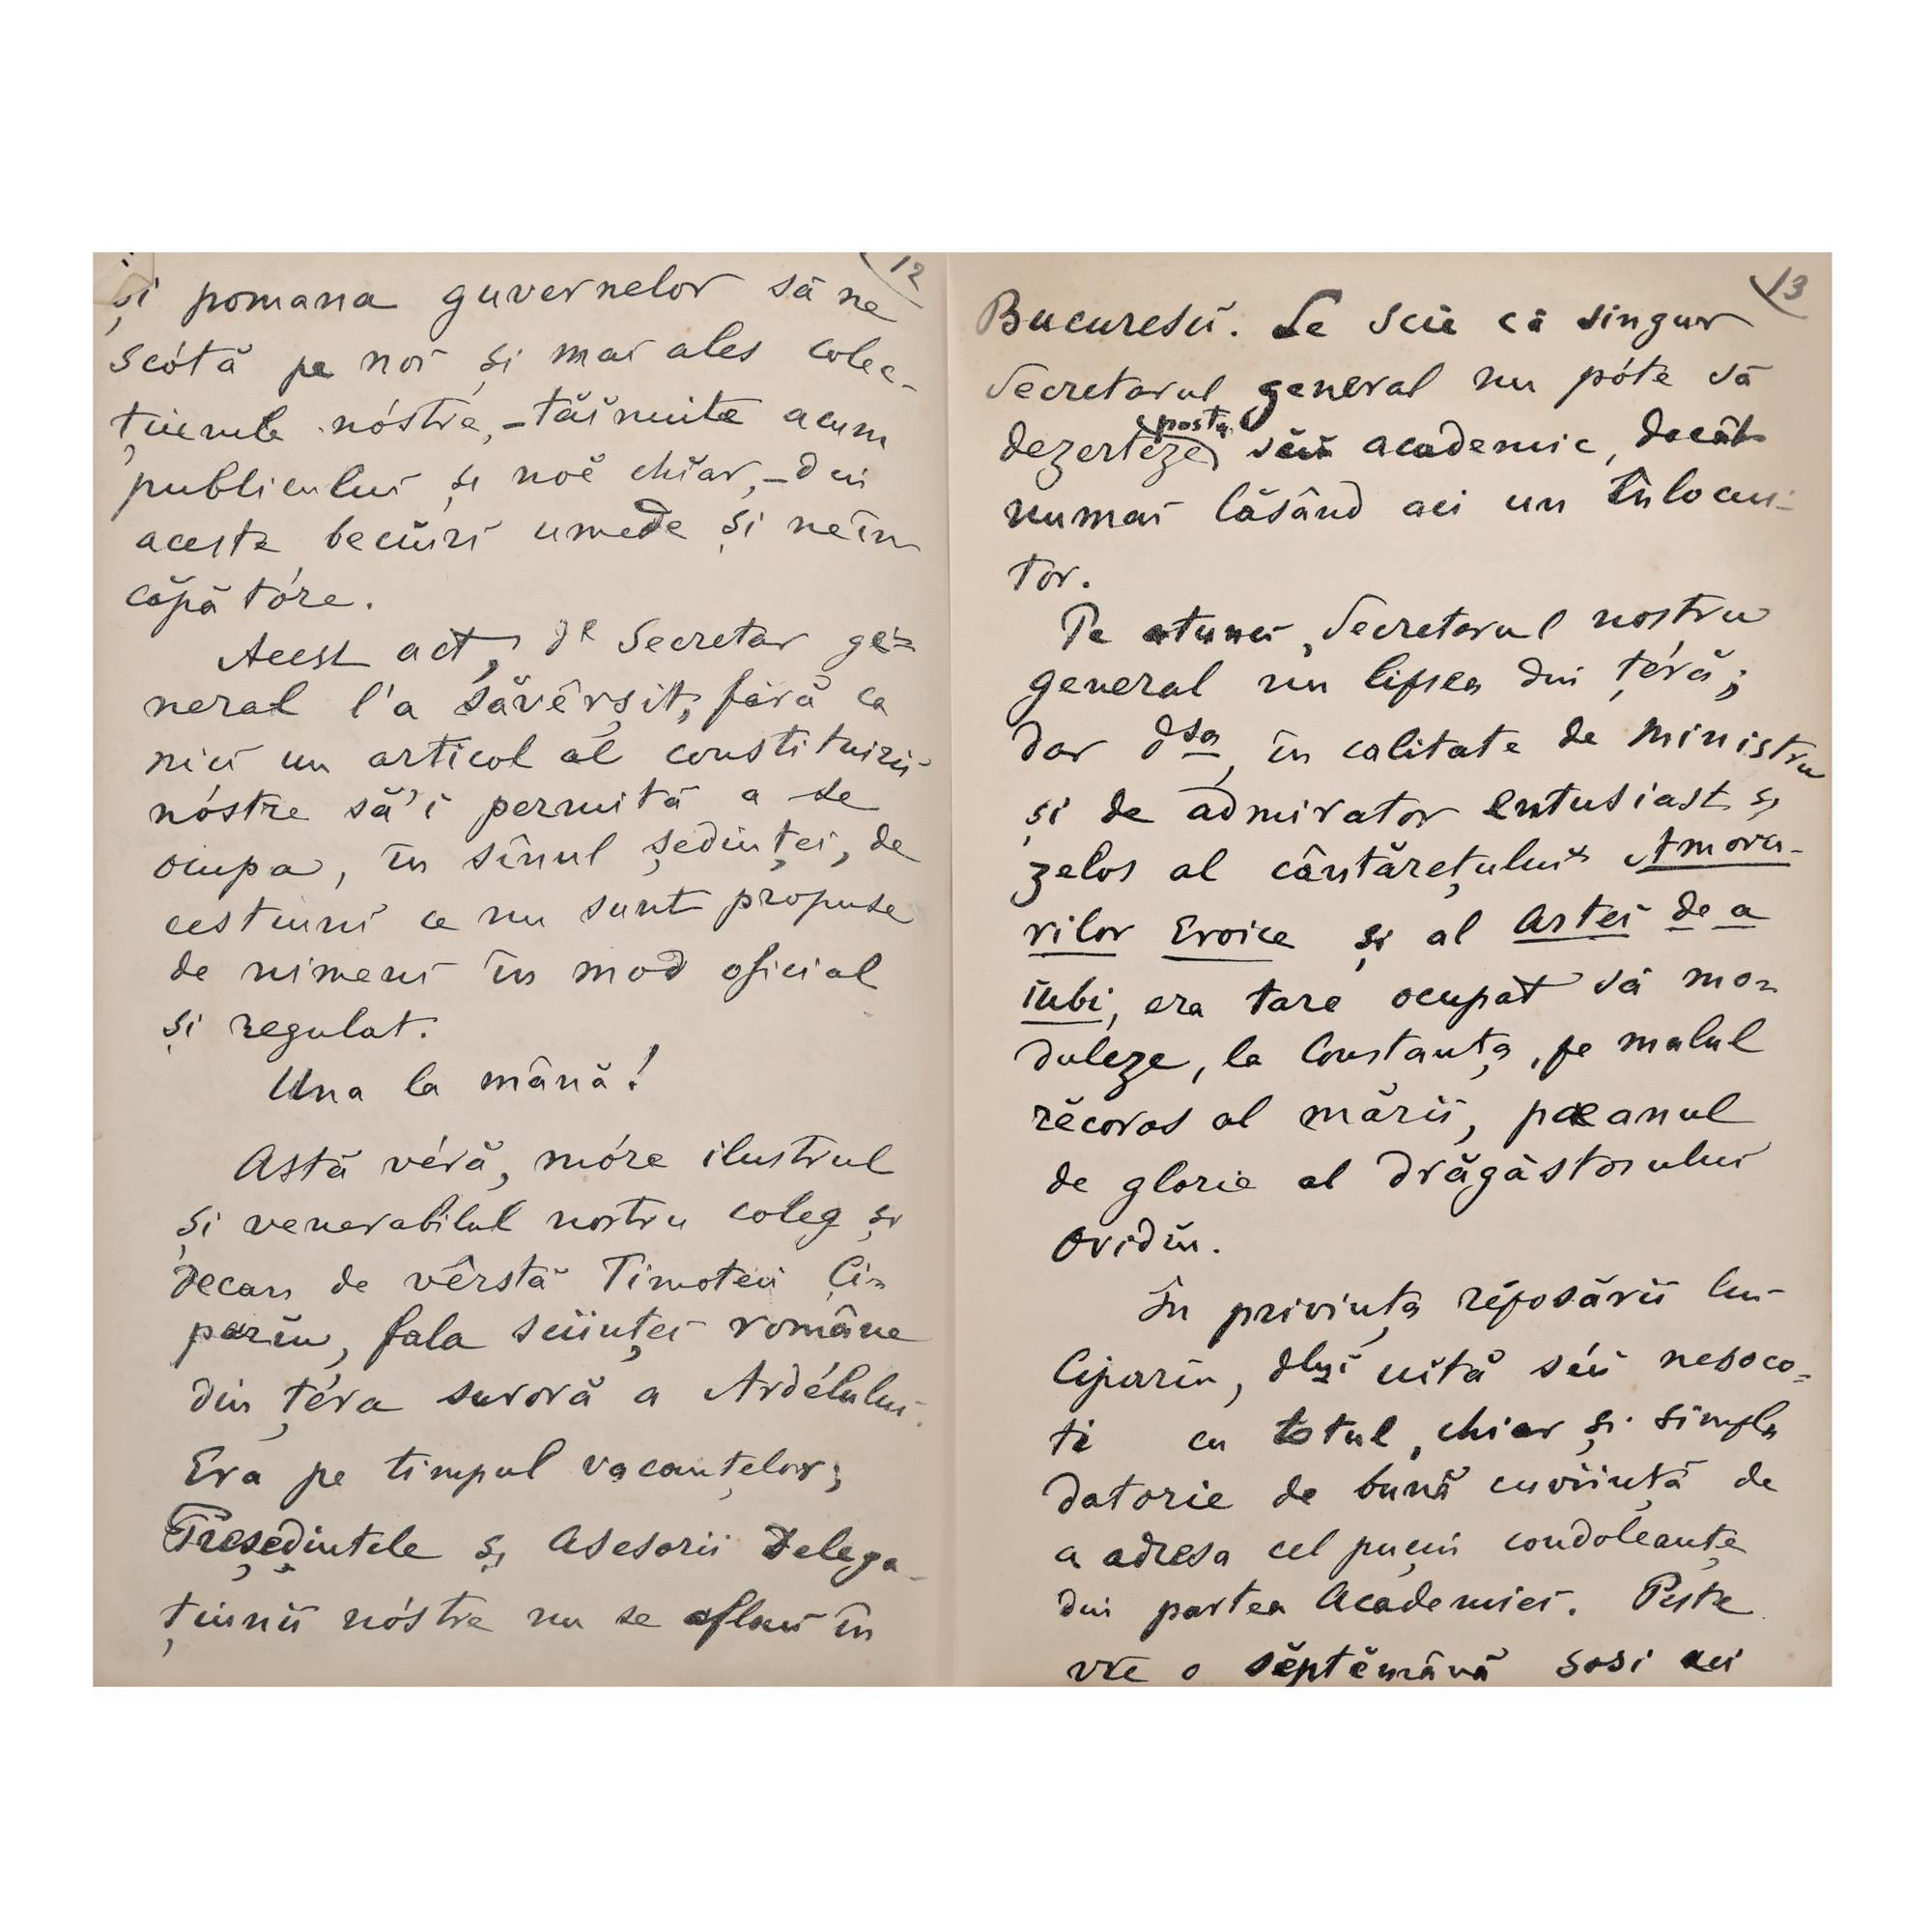 12
și pomana guvernelor să ne
scótă pe noĭ și maĭ ales colec-
țiunile nóstre, – tăĭnuite acum
publiculuĭ și noĕ chĭar, – din
aceste beciŭrĭ umede și neîn
căpătóre.
Acest act, dl Secretar ge-
neral l'a săvêrșit, fără ca
nicĭ un articol al constituirii
nóstre să'ĭ permită a se
ocupa, în sînul ședinței, de
cestiunĭ ce nu sunt propuse
de nimenĭ în mod oficial
și regulat.
Una la mână!
Astă véră, móre ilustrul
și venerabilul nostru coleg și
decan de vêrstă Timoteiŭ Ci-
pariu, fala sciințeĭ române
din țéra suroră a Ardélului.
Era pe timpul vacanțelor;
Președintele și Asesorii Delega-
țiunii nóstre nu se aflaŭ în
13
Bucuresci. Se scie că singur
Secretarul general nu póte să
dezerteze postul sĕŭ academic, decât
numaĭ lăsând aci un înlocui-
tor.
Pe atuncĭ, Secretarul nostru
general nu lipsea din țéră;
dar dsa, în calitate de ministru
și de admirator entusiast și
zelos al cântărețuluĭ Amoru-
rilor Eroice și al Arteĭ de a
iubi, era tare ocupat să mo-
duleze, la Constanța, pe malul
rĕcoros al mării, paeanul
de glorie al drăgăstosuluĭ
Ovidiu.
În privința rĕposării luĭ
Cipariu, dluĭ uĭtă séŭ nesoco-
ti cu totul, chiar și simpla
datorie de bună cuviință de
a adresa cel puçin condoleanțe
din partea Academieĭ. Peste
vre o sĕptĕmână sosi aci